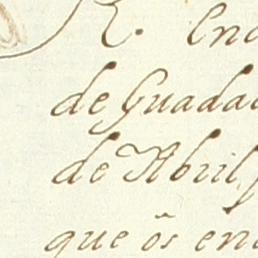 R. Enc
de Guada
de Abril
que õs en